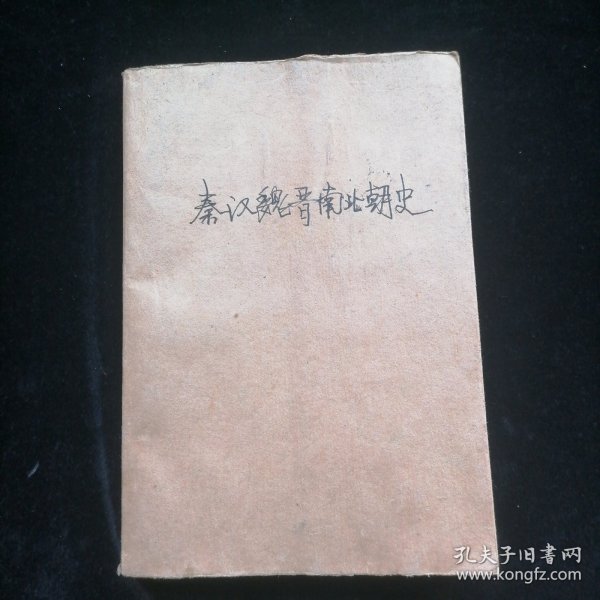 秦汉魏晋南北朝史
孔夫子旧書网
www.kongfz.com